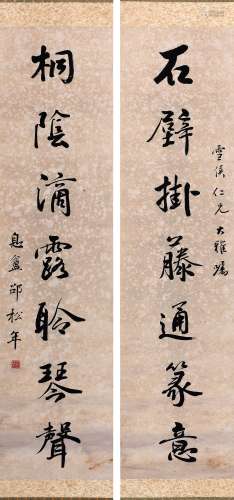 石壁掛藤通篆意
雪侯仁兄大雅屬
桐陰滴露聆琴聲
息盦邵松年